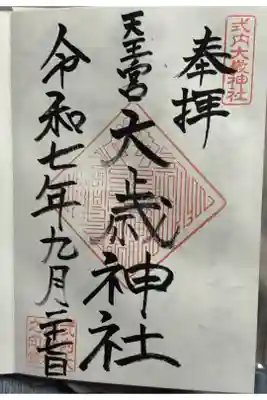 式内大歳神社
奉拝
天王宮
大歳神社
令和七年九月